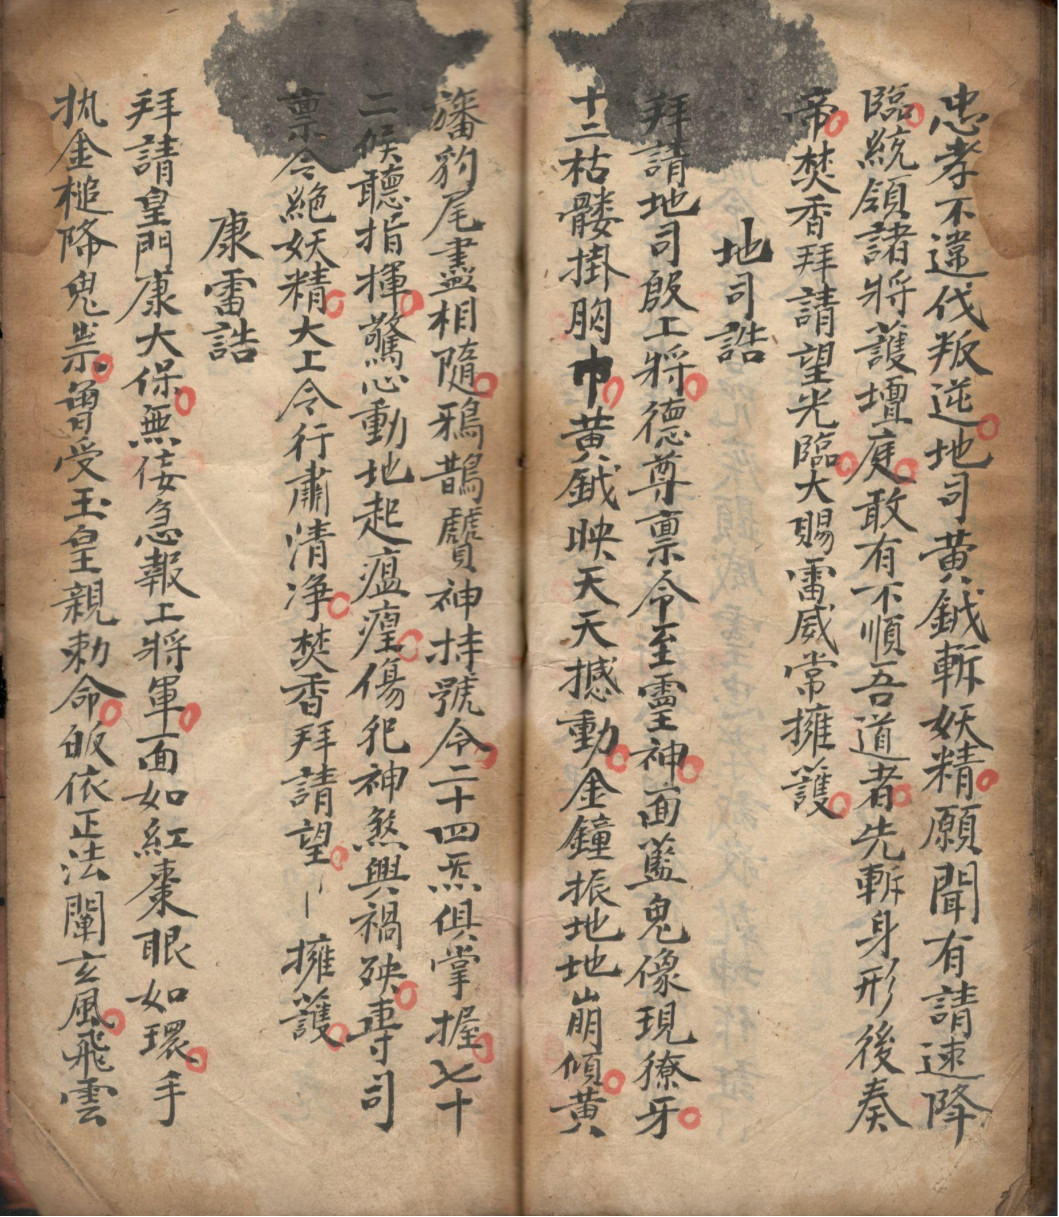 忠孝不違伐叛逆地司黃鉞斬妖精願聞有請速降
臨統領諸將護壇庭敢有不順吾道者先斬身形後奏
帝焚香拜請望光臨大賜雷威常擁護
地司誥
拜請地司殷上將德尊禀令至靈神面藍鬼像現獠牙
十二枯髏掛胸巾黃鉞映天天撼動金鐘振地地崩傾黃
旛豹尾盡相隨鴉鵲贋神持號令二十四炁俱掌握七十
二候聽指揮驚心動地起瘟㾮傷犯神煞興禍殃專司
禀令絶妖精大上令行肅清净焚香拜請望丨擁護
康雷誥
拜請皇門康大保無佞急報上將軍面如紅棗眼如環手
执金槌降鬼祟曾受玉皇親勅命皈依正法闡玄風飛雲